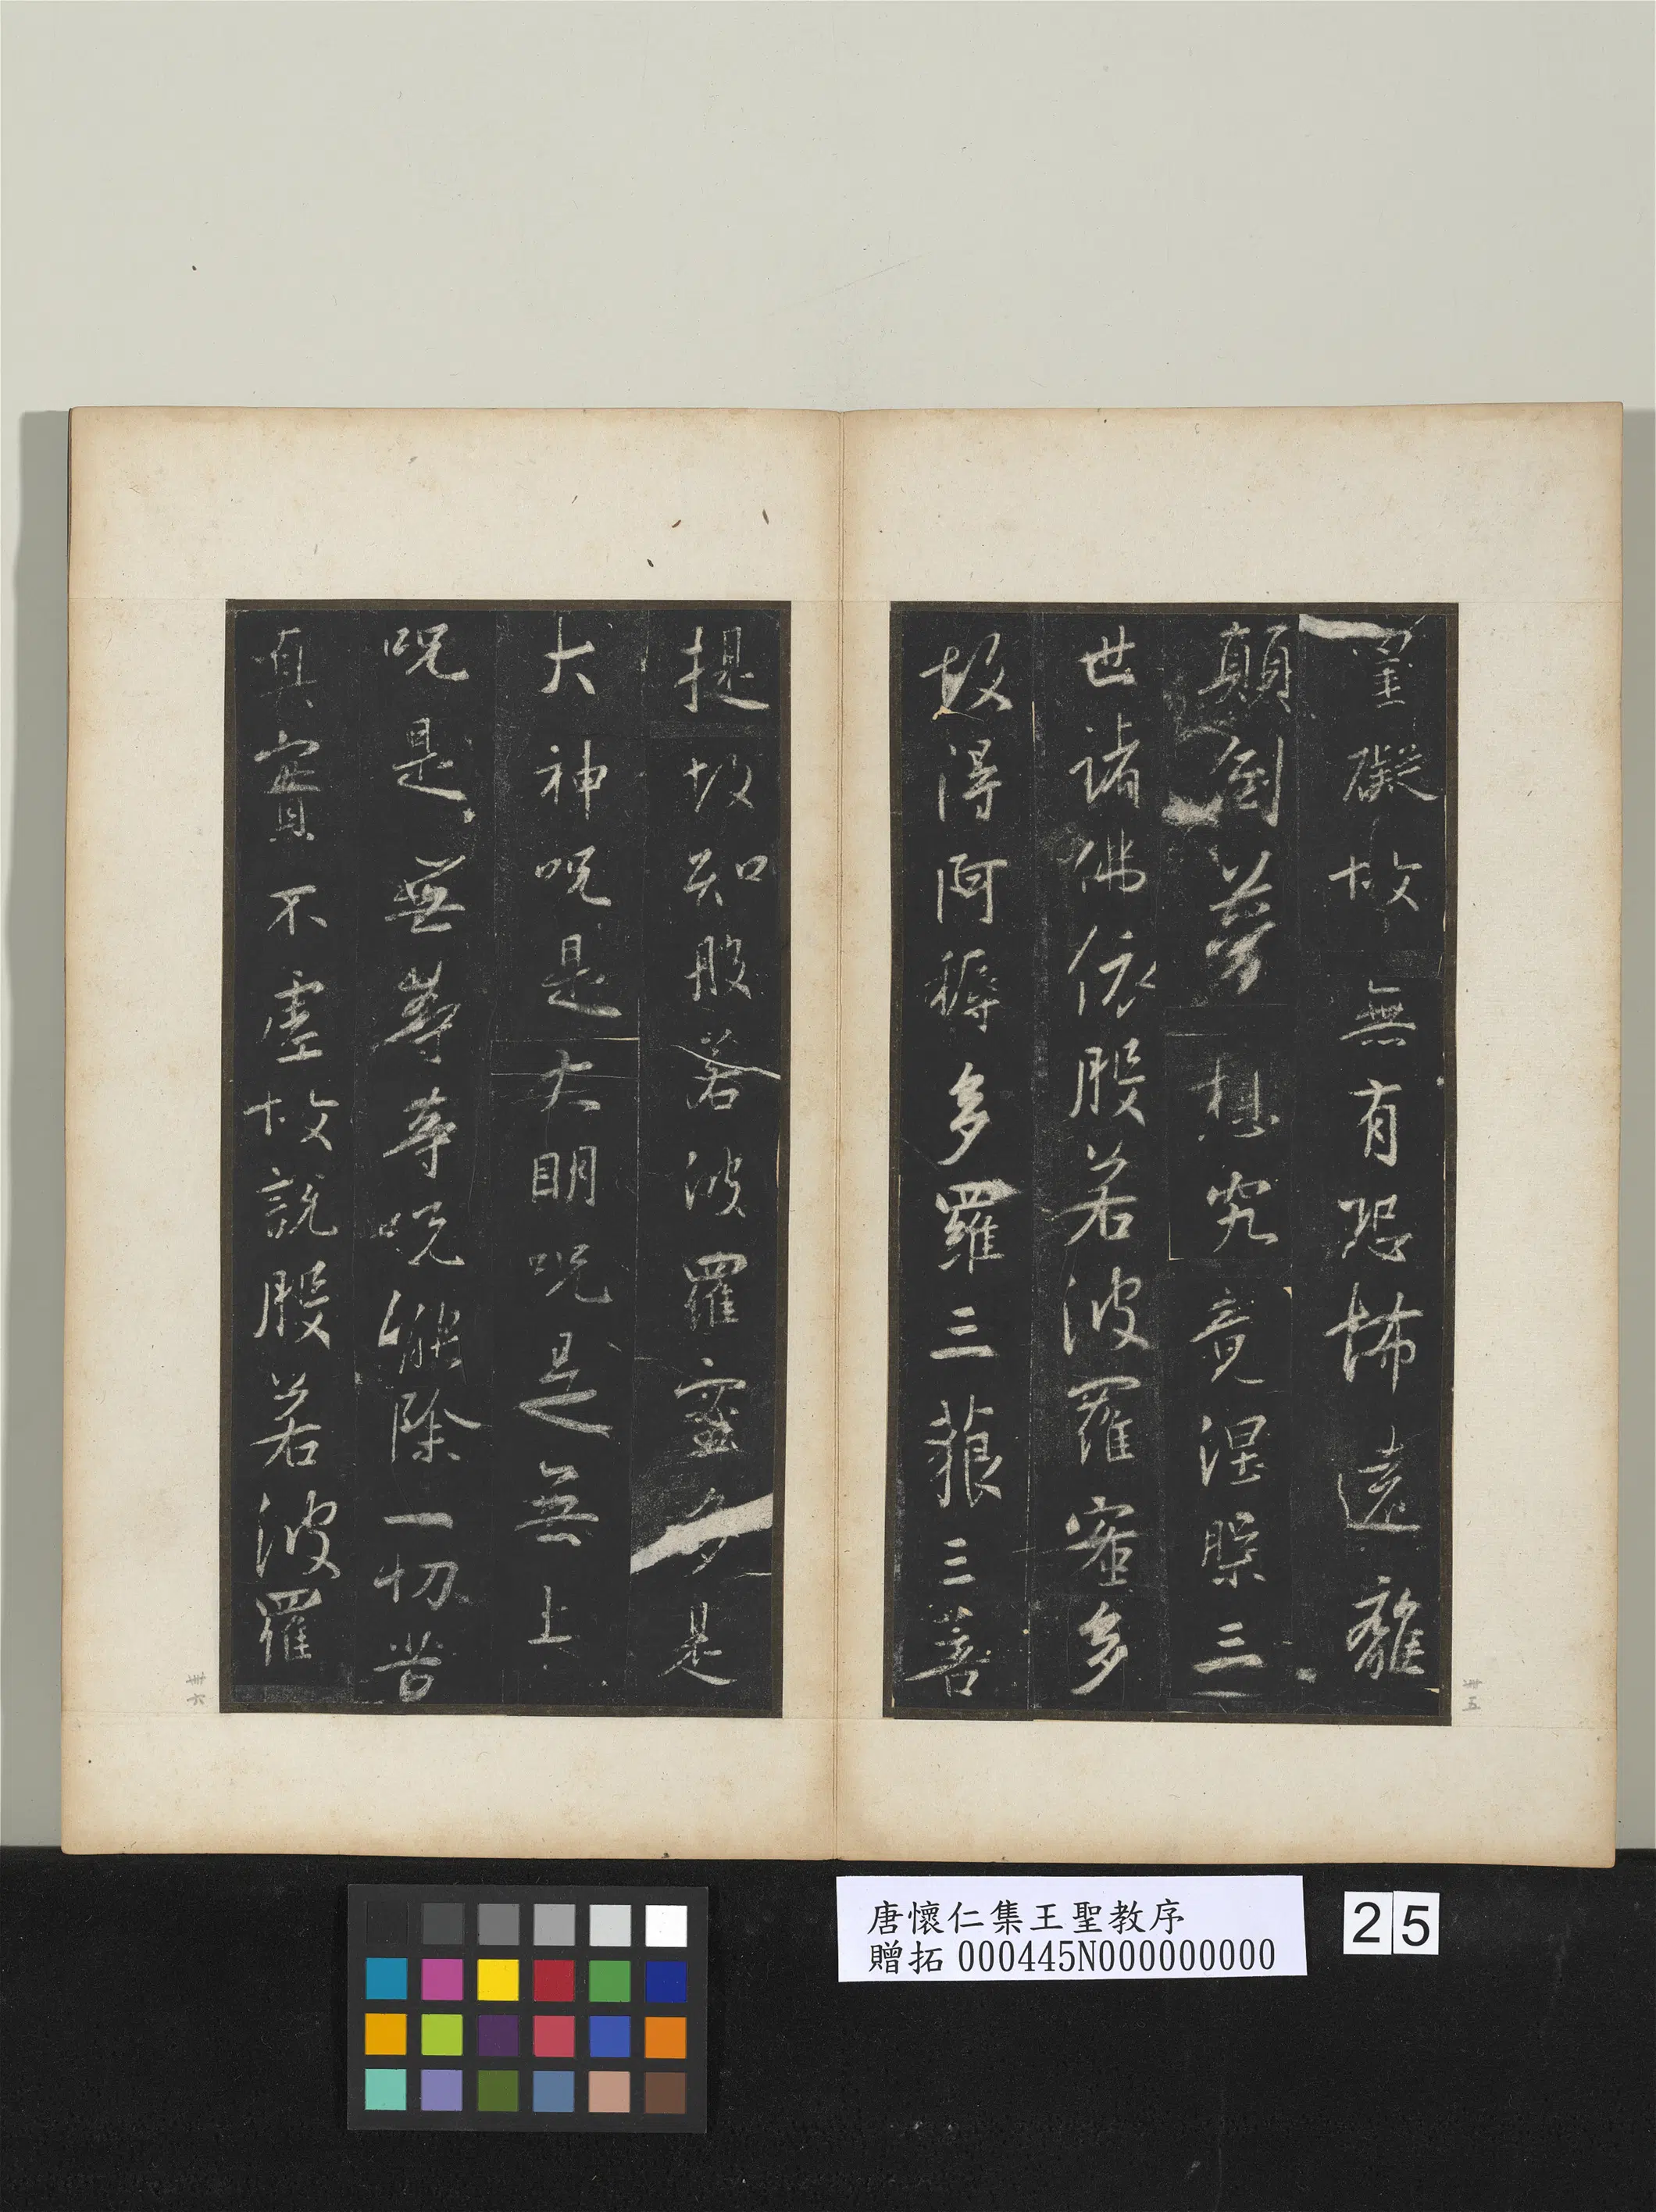 罣礙故無有恐怖遠離
顛倒夢想究竟涅槃三
世諸佛依般若波羅蜜多
故得阿耨多羅三藐三菩
卅五
提故知般若波羅蜜多是
大神呪是大明呪是無上
呪是無等等呪能除一切苦
真實不虛故說般若波羅
卅六
唐懷仁集王聖教序
贈拓 000445N000000000
25